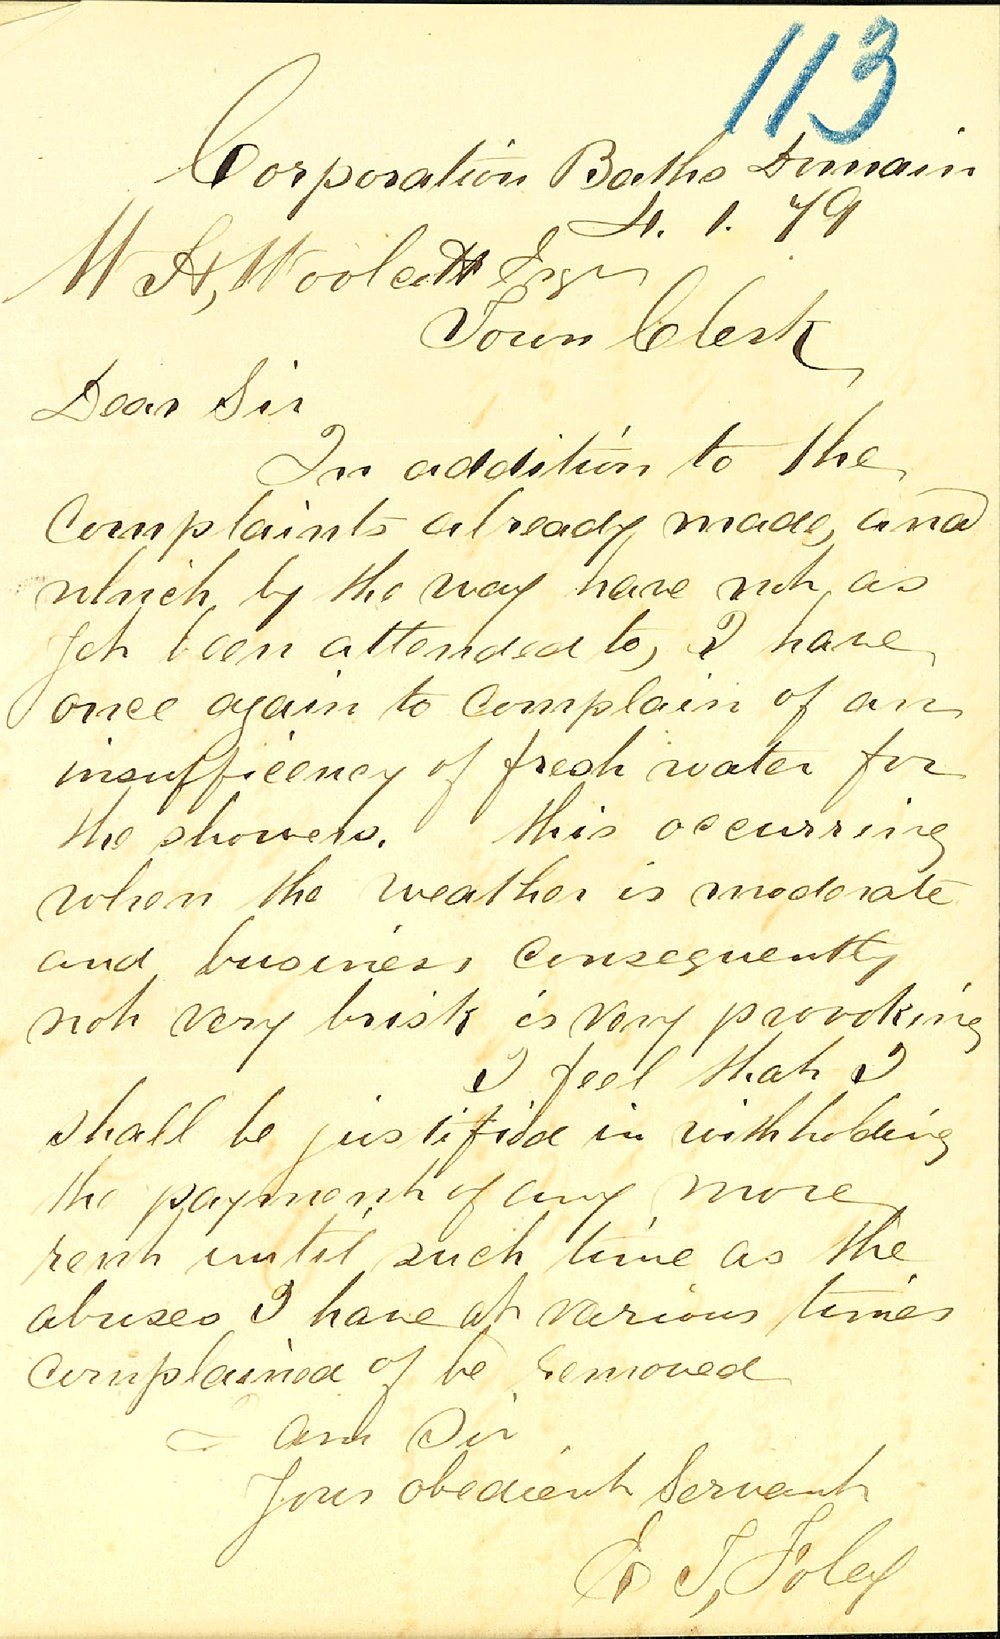 113
Corporation Baths Domain
4. 1. 79
W H, Woolcott Esqr
Town Clerk
Dear Sir
In addition to the
Complaints already made, and
which by the way have not as
yet been attended to, I have
once again to complain of an
insufficency of fresh water for
the showers. this occurring
when the weather is moderate
and business consequently
not very brisk is very provoking
I feel that I
shall be justified in withholding
the payment of any more
rent until such time as the
abuses I have at various times
complained of be removed
I am Sir
Your obedient Servant
E T, Foley